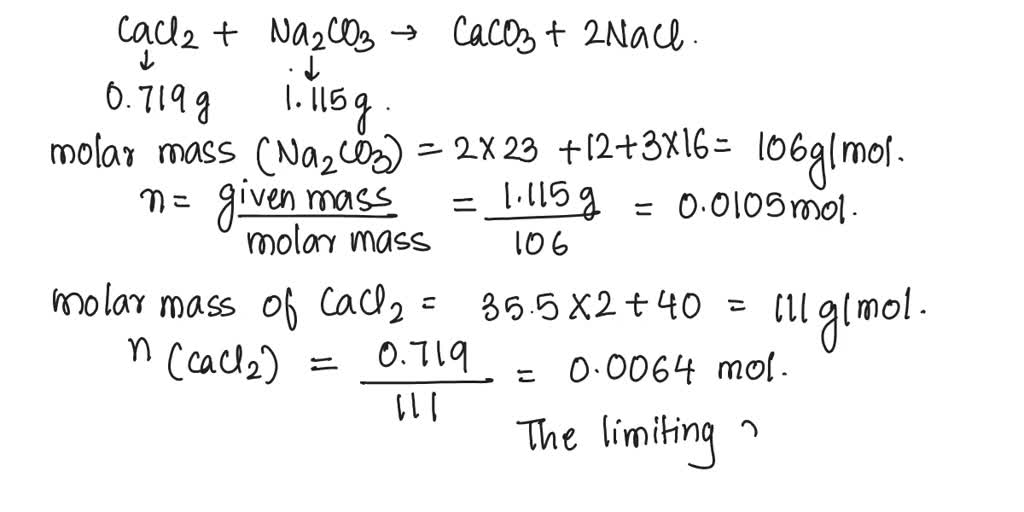 CaCl2 + Na2CO3 → CaCO3 + 2NaCl.
↓ ↓
0.719g 1.115g.
molar mass (Na2CO3) = 2×23 +12+3×16= 106g/mol.
n= given mass / molar mass = 1.115g / 106 = 0.0105mol.
molar mass of CaCl2 = 35.5×2+40 = 111g/mol.
n (CaCl2) = 0.719 / 111 = 0.0064 mol.
The limiting